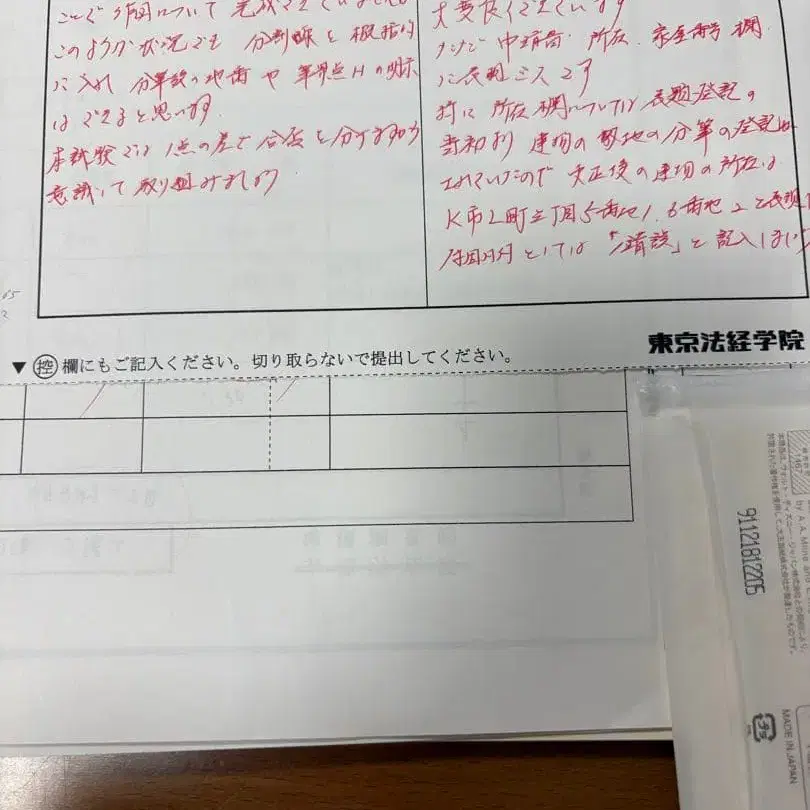 このような状況でも 分割線を概括的
に入れ 分筆後の地番や 筆界点Hの明示
はできると思います
本試験では1点の差で合否を分けますので
意識して取り組みましょう
大変良くできています
ただ 申請書 所在 家屋番号 欄
に表現ミスです
特に 所在欄については 表題登記の
当初より 建物の敷地の分筆の登記が
されていたので 更正後の建物の所在は
K市L町三丁目5番地1、6番地2と表現
原因日付としては「錯誤」と記入
▼控欄にもご記入ください。切り取らないで提出してください。
東京法経学院
91121812205
MADE IN JAPAN